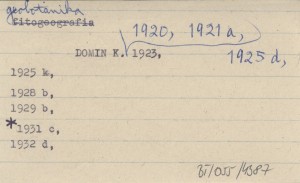 geobotánika
Fitogeografia
1920, 1921a,
DOMIN K. 1923, 1925 d,
1925 k,
1928 b,
1929 b,
*1931 c,
1932 d,
BT/055/4387